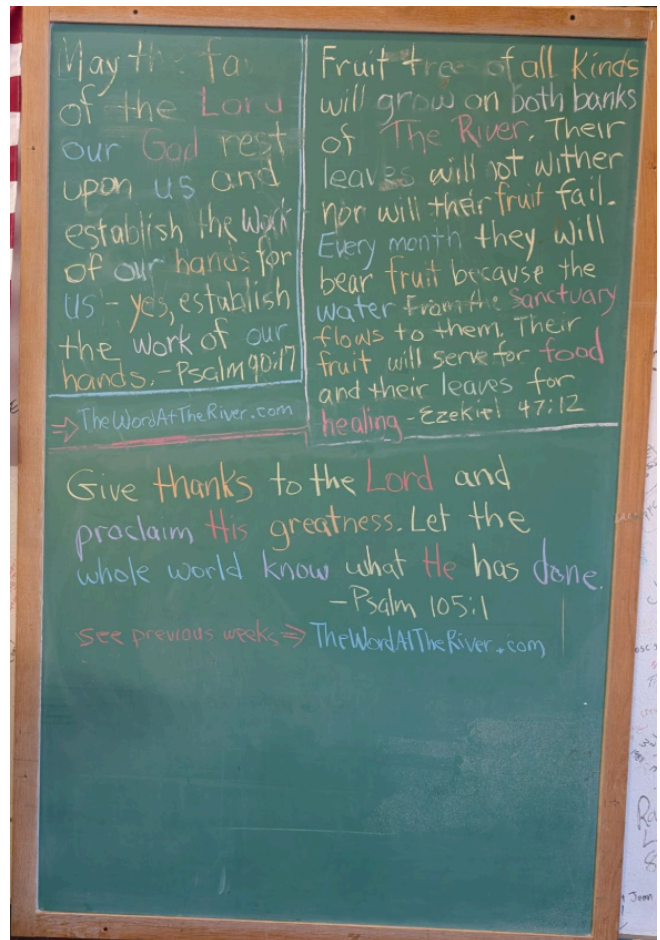 May the fa
of the Lord
our God rest
upon us and
establish the work
of our hands for
us - yes, establish
the work of our
hands. - Psalm 90:17
⇒ TheWordAtTheRiver.com
Fruit trees of all kinds
will grow on both banks
of The River. Their
leaves will not wither
nor will their fruit fail.
Every month they will
bear fruit because the
water from the Sanctuary
flows to them. Their
fruit will serve for food
and their leaves for
healing - Ezekiel 47:12
Give thanks to the Lord and
proclaim His greatness. Let the
whole world know what He has done.
- Psalm 105:1
See previous weeks ⇒ TheWordAtTheRiver.com
Jean